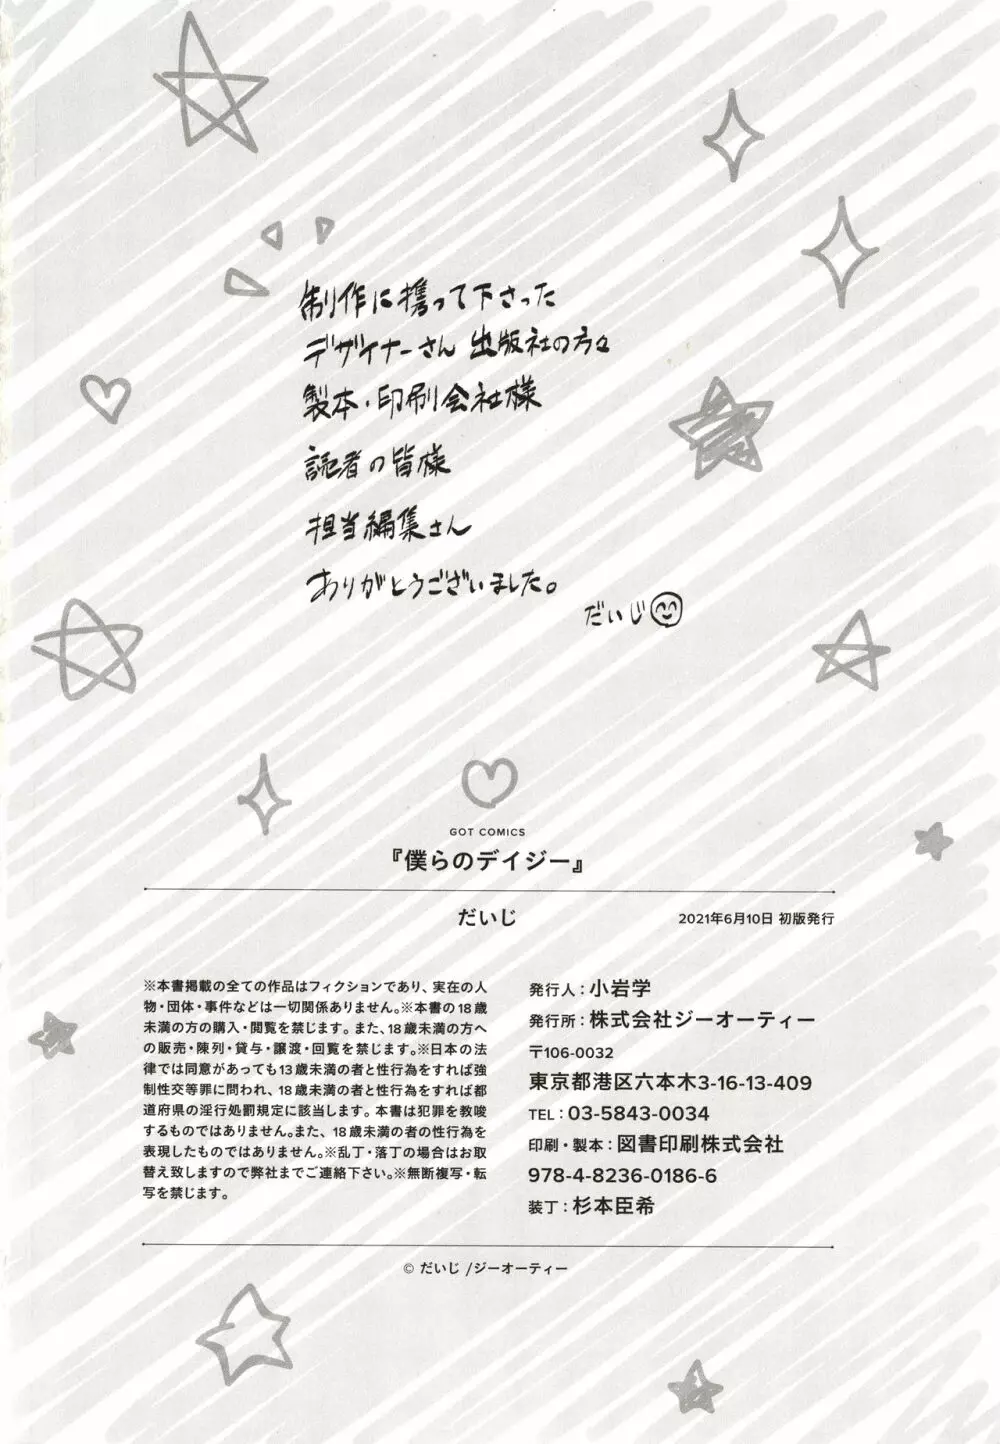 制作に携って下さった
デザイナーさん 出版社の方々
製本・印刷会社様
読者の皆様
担当編集さん
ありがとうございました。
だいじ
GOT COMICS
『僕らのデイジー』
だいじ
2021年6月10日 初版発行
※本書掲載の全ての作品はフィクションであり、実在の人
物・団体・事件などは一切関係ありません。※本書の18歳
未満の方の購入・閲覧を禁じます。また、18歳未満の方へ
の販売・陳列・貸与・譲渡・回覧を禁じます。※日本の法
律では同意があっても13歳未満の者と性行為をすれば強
制性交等罪に問われ、18歳未満の者と性行為をすれば都
道府県の淫行処罰規定に該当します。本書は犯罪を教唆
するものではありません。また、18歳未満の者の性行為を
表現したものではありません。※乱丁・落丁の場合はお取
替え致しますので弊社までご連絡下さい。※無断複写・転
写を禁じます。
発行人：小岩学
発行所：株式会社ジーオーティー
〒106-0032
東京都港区六本木3-16-13-409
TEL：03-5843-0034
印刷・製本：図書印刷株式会社
978-4-8236-0186-6
装丁：杉本臣希
© だいじ /ジーオーティー